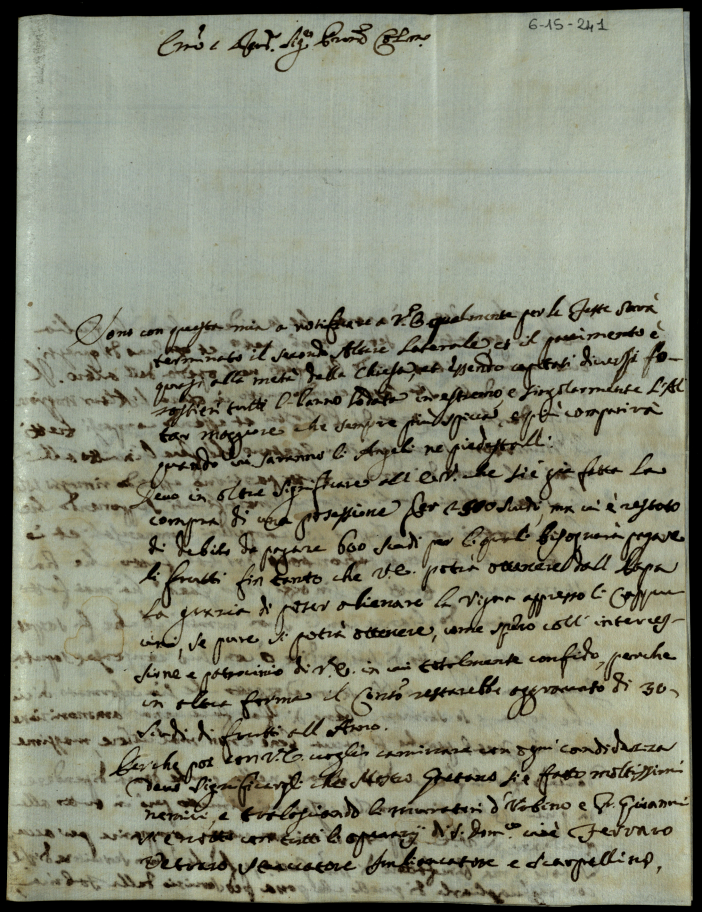 6-15-241
Em.o e Rev.mo Sig.re Pron.o Col.mo
Sono con questa mia a notificare a V.E. qualmente per le Feste sarà
terminato il secondo Altare Laterale, et il pavimento è
quasi alla metà della Chiesa, et essendo capitati diversi fo-
rastieri tutti l'hanno lodata in estremo e singolarmente l'Al
tar maggiore che sempre più spicca, e più comparirà
quando vi saranno li Angeli ne piedestalli.
Devo in oltre significare all'E.V. che si è già fatta la
compra di una posessione per 2500 scudi, ma vi è restato
di debito da pagare 600 scudi per li quali bisognarà pagare
li frutti fin tanto che V.E. potrà ottenere dall Papa
la grazia di poter alienare la vigna appresso li Cappu
cini, se pure si potrà ottenere, come spero coll' interces-
sione e patrocinio di V.E. in cui totalmente confido, perche
in altra forma il Conv.to restarebbe aggravato di 30
scudi di frutti all'Anno.
Perche poi con V.E. voglio caminare con ogni candidezza
devo significargli che Mastro Gaetano si è fatto moltissimi
nemici, e tralasciando li muratori d'Urbino e Giovanni
con tutti li operarij di S. Dom.co cioè Ferraro
Vetraro Stuccatore Imbiancatore e Scarpellino,